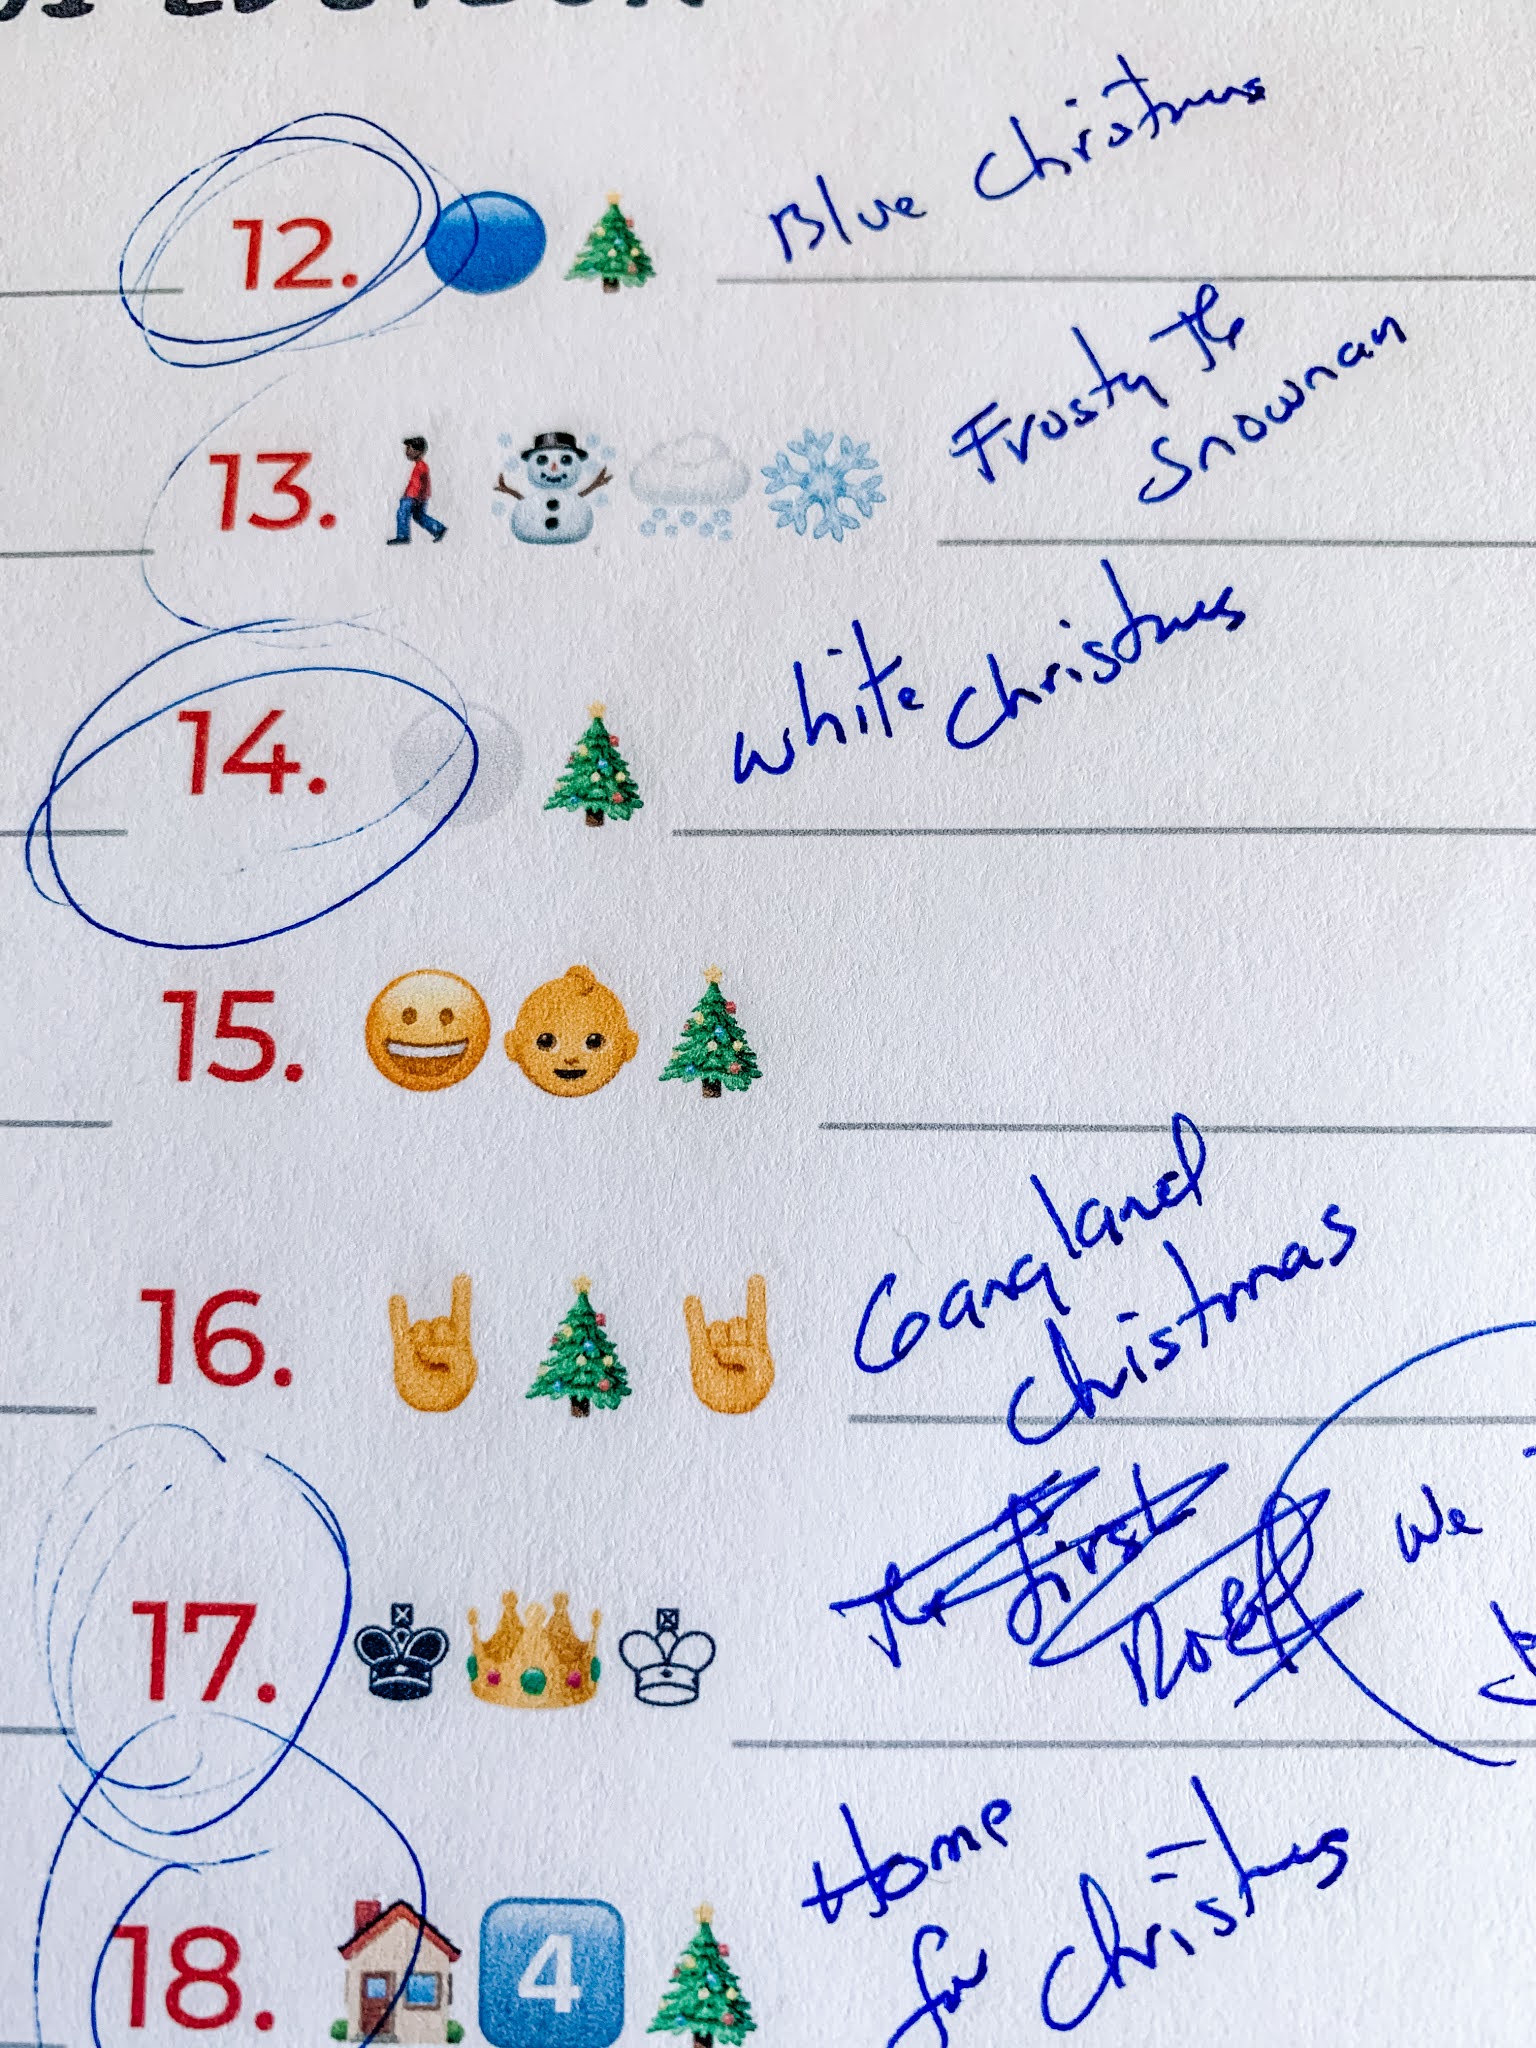 12. Blue Christmas
13. Frosty The
Snowman
14. White Christmas
15.
16. Gangland
Christmas
17. The First
Noel We
18. 4 Home
for Christmas